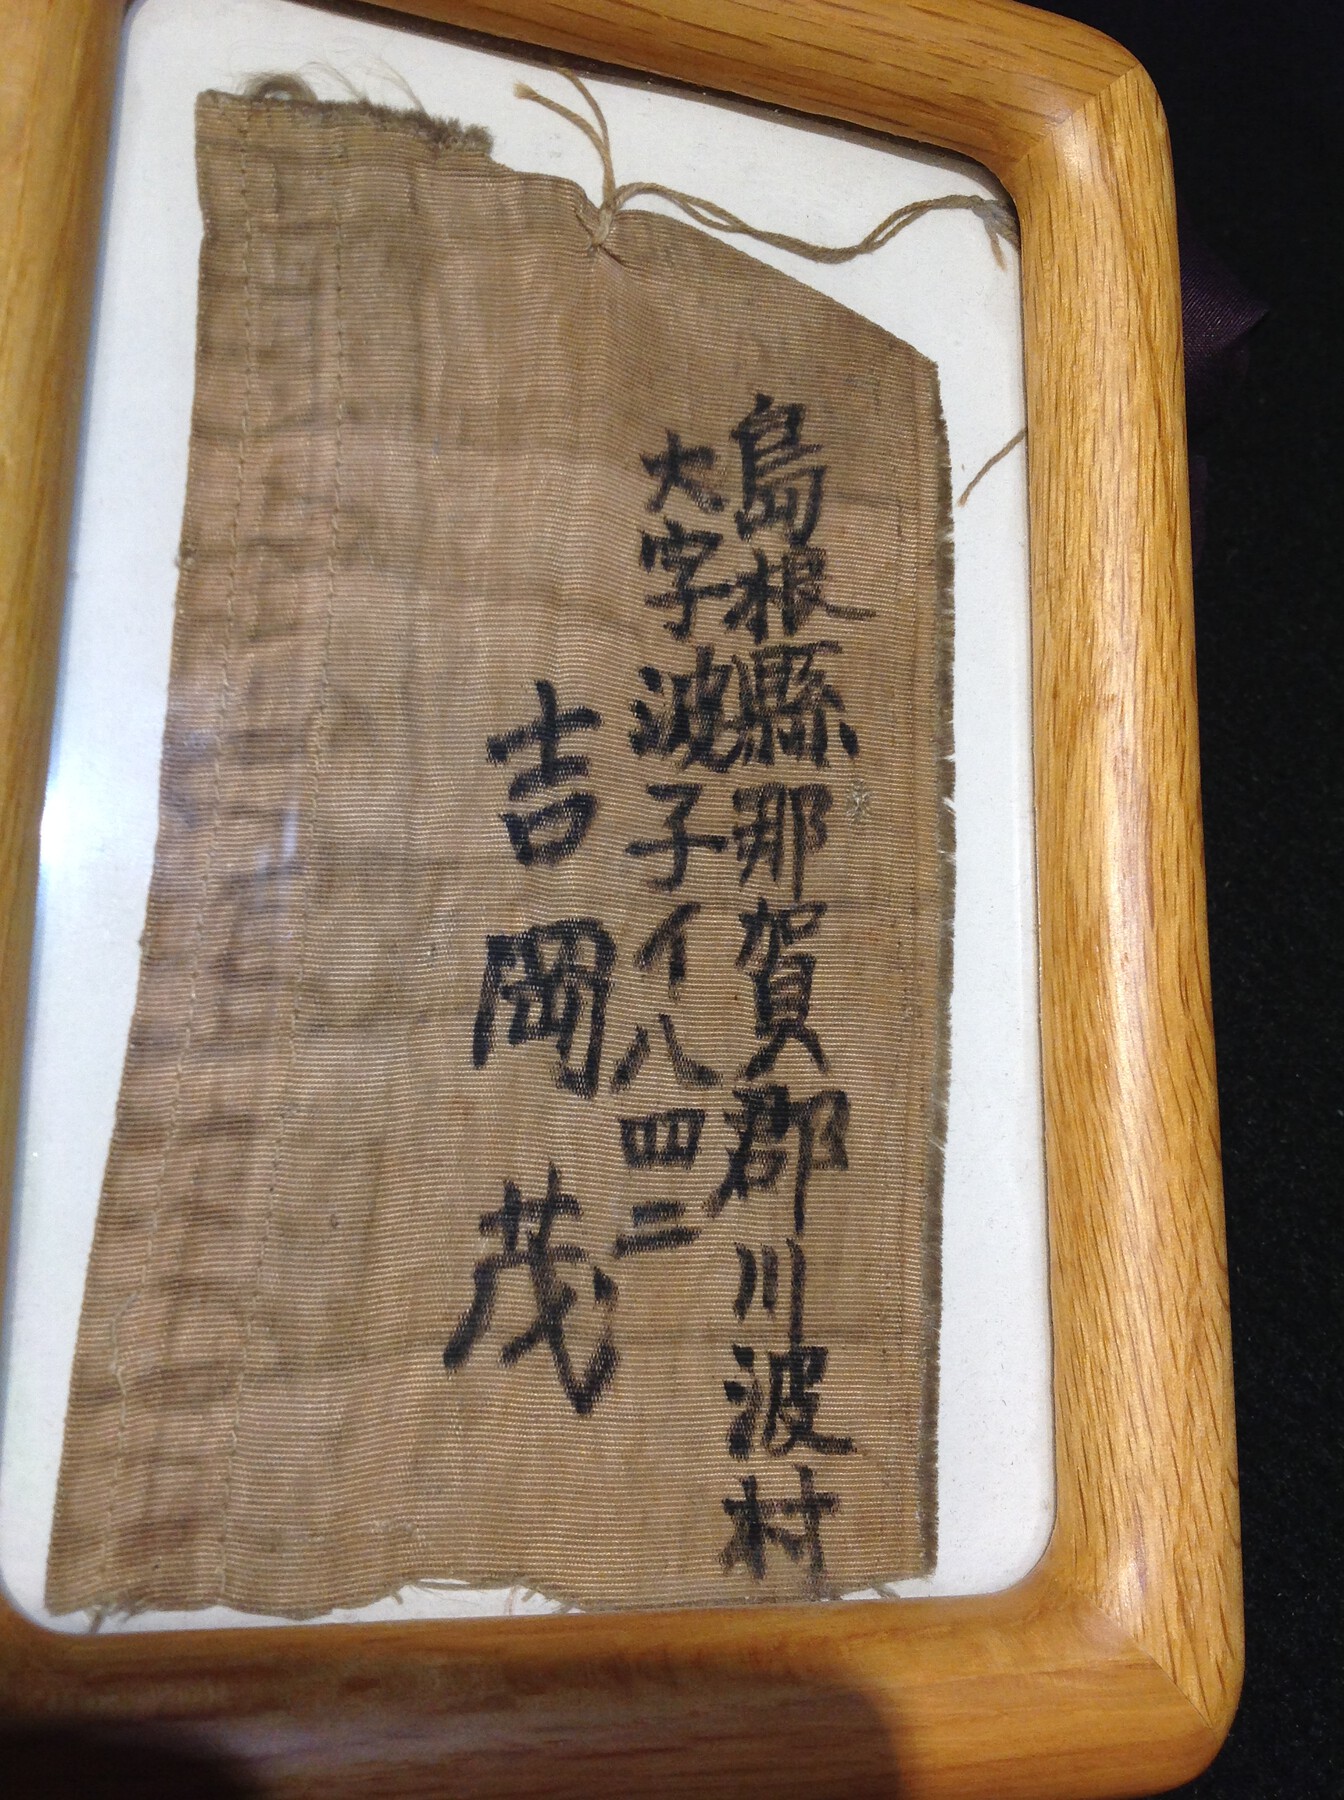 島根縣那賀郡川波村
大字波子イ八四二
吉岡茂